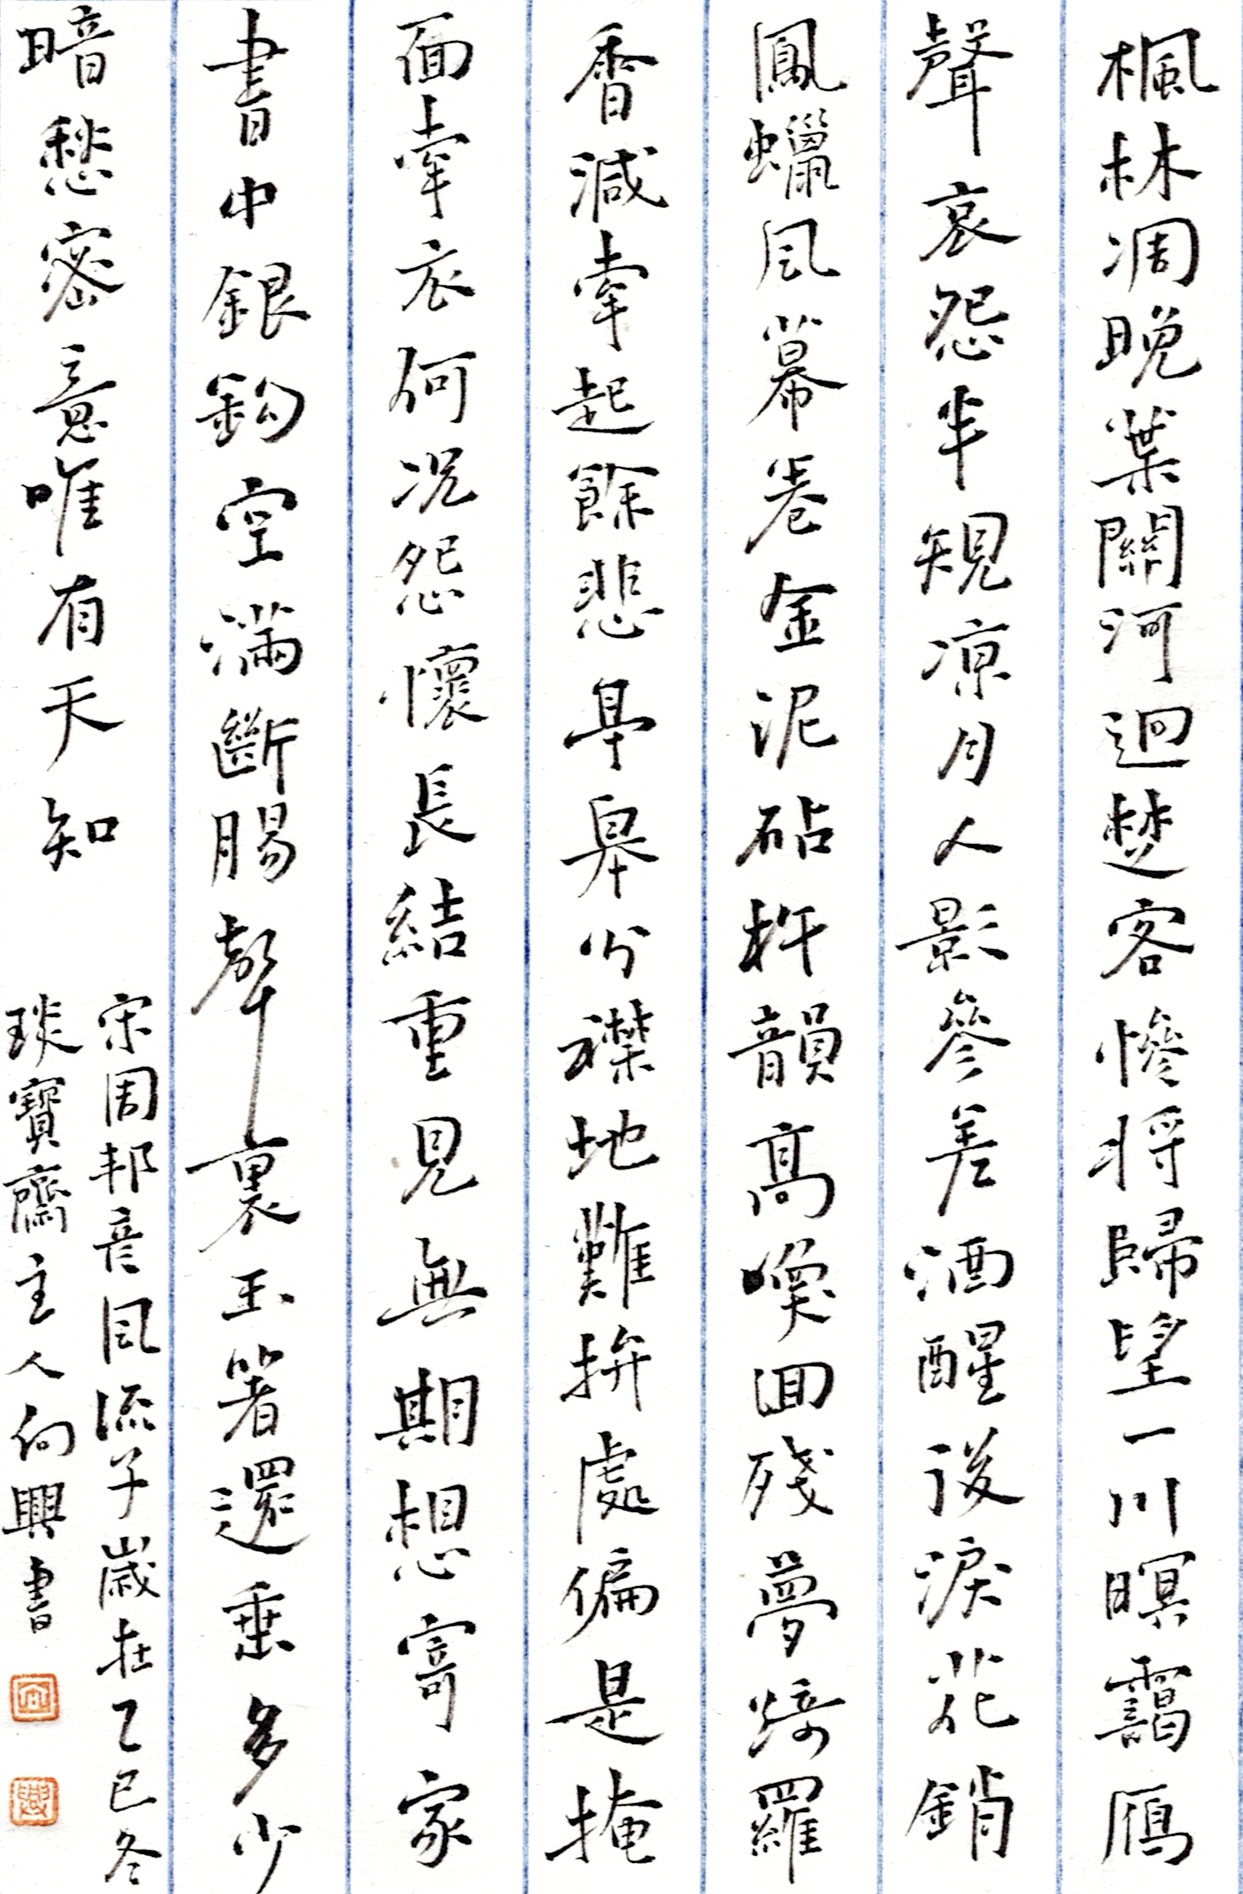 楓林凋晚葉關河迥楚客慘將歸望一川暝靄鴈
聲哀怨半規凉月人影參差酒醒後淚花銷
鳳蠟風幕卷金泥砧杵韻高喚回殘夢綺羅
香減牽起餘悲早皋分襟地難拚處偏是掩
面牽衣何況怨懷長結重見無期想寄家
書中銀鈎空滿斷腸聲裏玉箸還垂多少
暗愁密意唯有天知
宋周邦彥風流子歲在乙巳冬
琰寶齋主人向興書
向
興